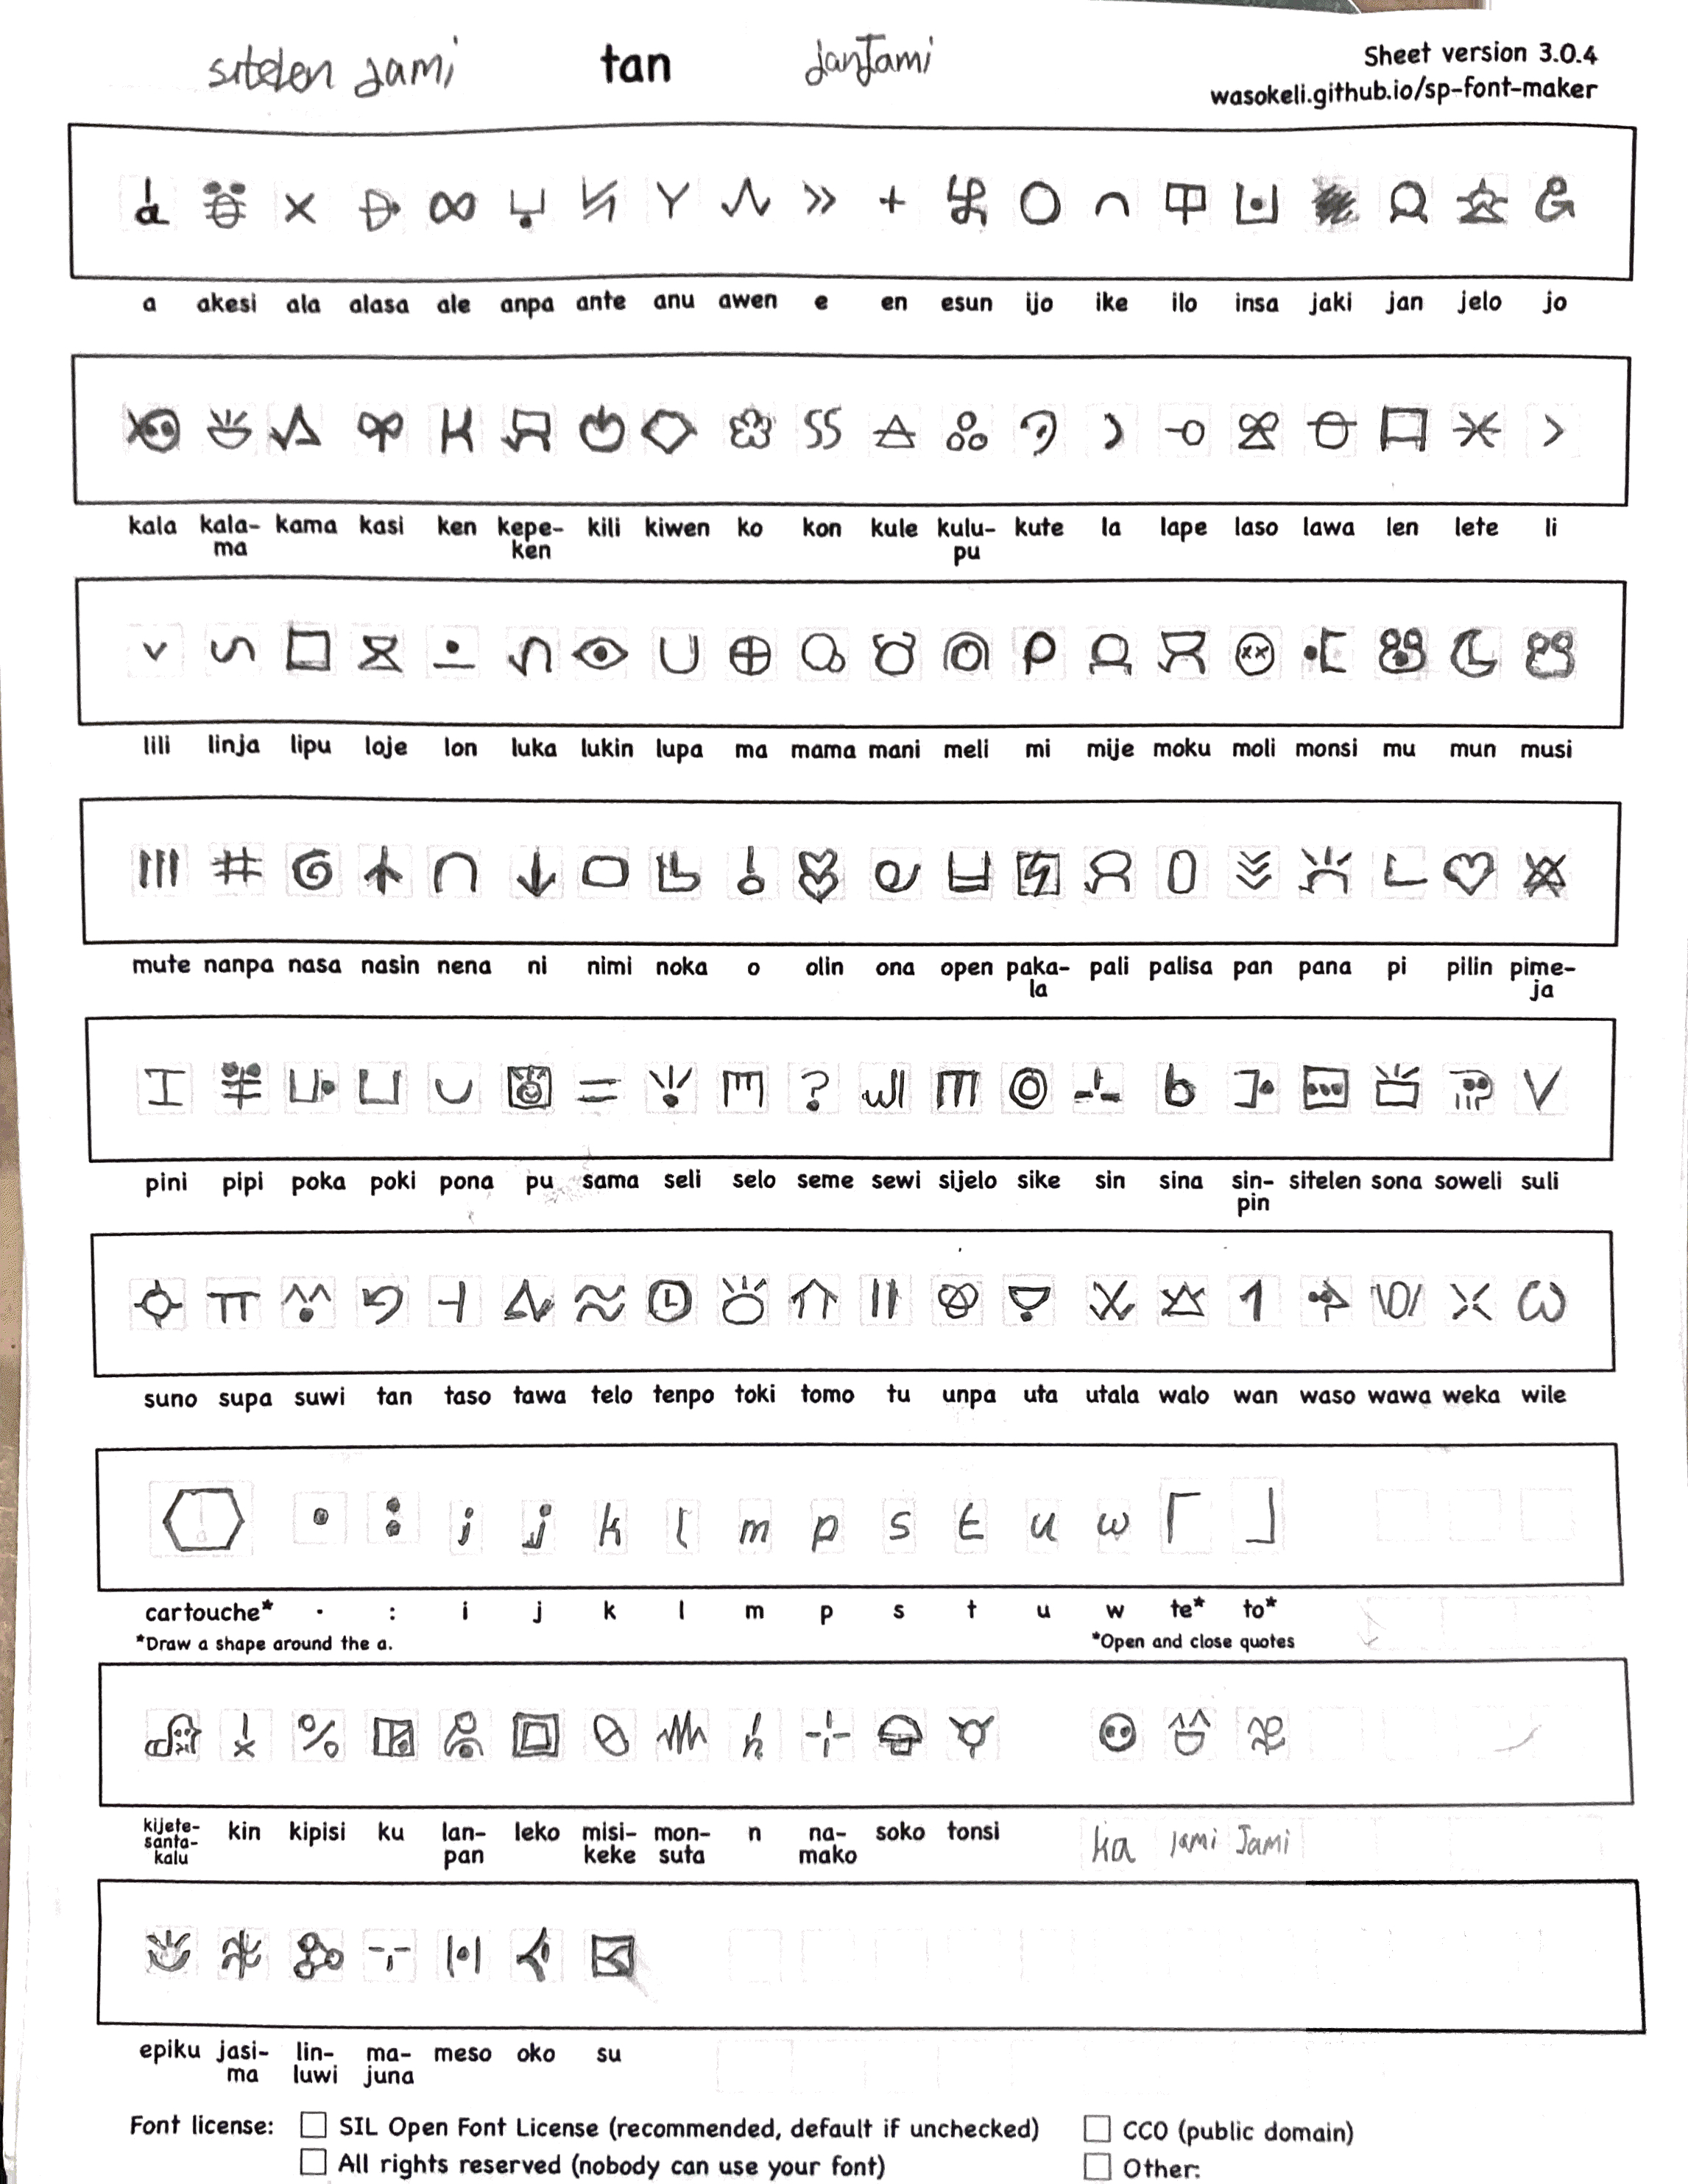 sitelen Jami tan jan Jami
Sheet version 3.0.4
wasokeli.github.io/sp-font-maker
a akesi ala alasa ale anpa ante anu awen e en esun ijo ike ilo insa jaki jan jelo jo
kala kala- kama kasi ken kepe- kili kiwen ko kon kule kulu- kute la lape laso lawa len lete li
ma ken pu
lili linja lipu loje lon luka lukin lupa ma mama mani meli mi mije moku moli monsi mu mun musi
mute nanpa nasa nasin nena ni nimi noka o olin ona open paka- pali palisa pan pana pi pilin pime-
la ja
pini pipi poka poki pona pu sama seli selo seme sewi sijelo sike sin sina sin- sitelen sona soweli suli
pin
suno supa suwi tan taso tawa telo tenpo toki tomo tu unpa uta utala walo wan waso wawa weka wile
• : i j k l m p s t u w ⌈ ⌋
cartouche* · : i j k l m p s t u w te* to*
*Draw a shape around the a. *Open and close quotes
kijete- kin kipisi ku lan- leko misi- mon- n na- soko tonsi ka jami Jami
santa- pan keke suta mako
kalu
epiku jasi- lin- ma- meso oko su
ma luwi juna
Font license: SIL Open Font License (recommended, default if unchecked) CC0 (public domain)
All rights reserved (nobody can use your font) Other: